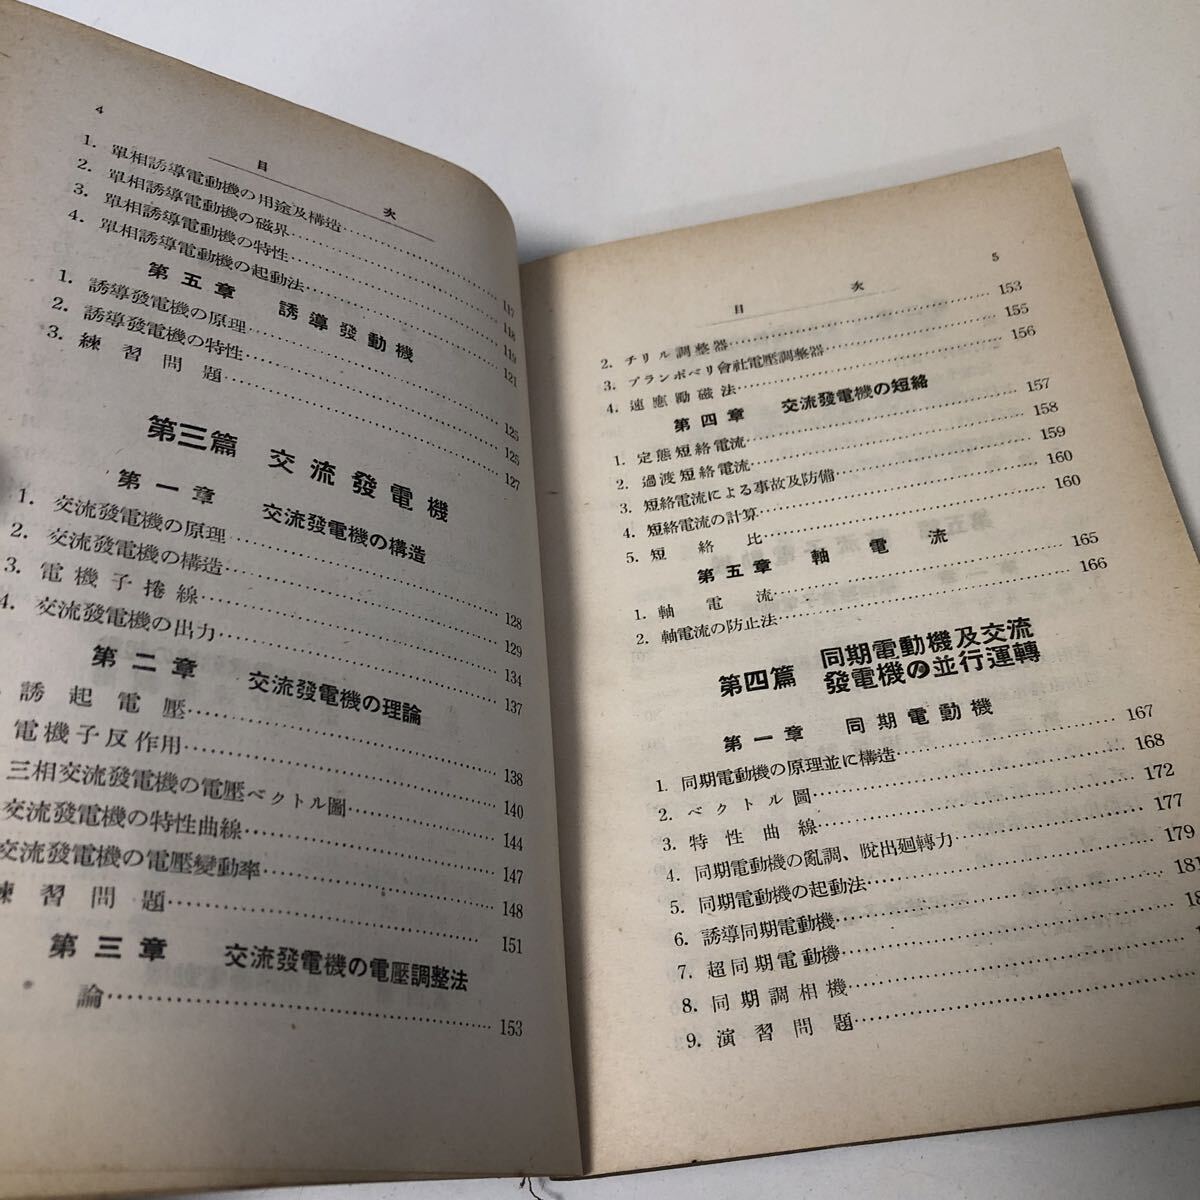 4
目次
1. 單相誘導電動機の用途及構造……117
2. 單相誘導電動機の磁界……118
3. 單相誘導電動機の特性……119
4. 單相誘導電動機の起動法……121
第五章 誘導發動機
1. 誘導發電機の原理……125
2. 誘導發電機の特性……125
3. 練習問題……127
第三篇 交流發電機
第一章 交流發電機の構造
1. 交流發電機の原理……128
2. 交流發電機の構造……129
3. 電機子捲線……134
4. 交流發電機の出力……137
第二章 交流發電機の理論
誘起電壓……138
電機子反作用……140
三相交流發電機の電壓ベクトル圖……144
交流發電機の特性曲線……147
交流發電機の電壓變動率……148
練習問題……151
第三章 交流發電機の電壓調整法
論……153
5
目次
2. チリル調整器……153
3. ブランボベリ會社電壓調整器……155
4. 速應勵磁法……156
第四章 交流發電機の短絡
1. 定態短絡電流……157
2. 過渡短絡電流……158
3. 短絡電流による事故及防備……159
4. 短絡電流の計算……160
5. 短絡比……160
第五章 軸電流
1. 軸電流……165
2. 軸電流の防止法……166
第四篇 同期電動機及交流發電機の並行運轉
第一章 同期電動機
1. 同期電動機の原理並に構造……167
2. ベクトル圖……168
3. 特性曲線……172
4. 同期電動機の亂調、脫出廻轉力……177
5. 同期電動機の起動法……179
6. 誘導同期電動機……181
7. 超同期電動機……
8. 同期調相機……
9. 演習問題……